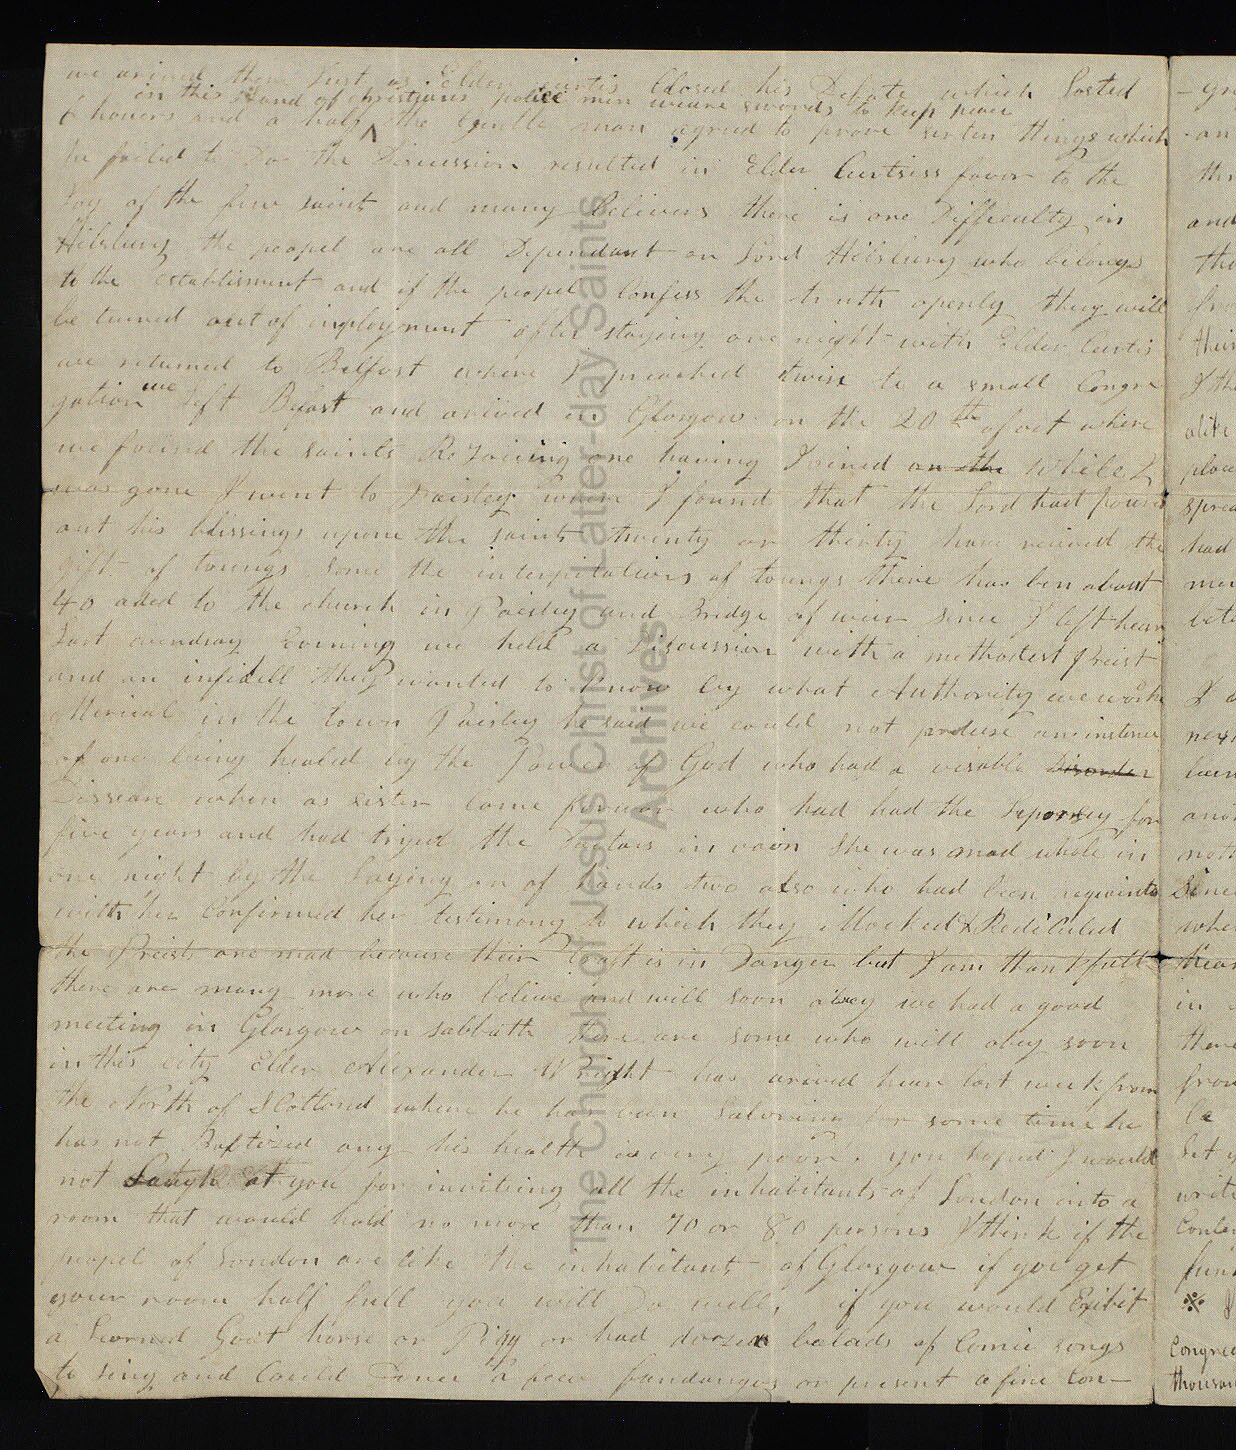 we arived there Just as Elder Curtis Closed his Debate which Lasted
in this Iland of christians police men weare swords to keep peace
6 houers and a half the Gentle man agreed to prove serten things which
he failed to Do the Discussion resulted in Elder Curtsiss favor to the
Joy of the few saints and many Belivers there is one Difficulty in
Hilsbury the peopel are all Dependant on Lord Hilsbury who belongs
to the establisment and if the peopel Confess the truth openly they will
be turned out of imployment after staying one night with Elder Curtis
we returned to Belfast where I preached twise to a small Congre
gation we left Befast and arived in Glasgow on the 20th of oct where
we found the saints ReJoicing one having Joined on the while I
was gone I went to Paisley whare I found that the Lord had poured
out his blessings upone the saints twenty or thirty have recived the
gift of toungs some the interpitations of toungs there has ben about
40 aded to the church in Paisley and Bridge of weir since I left hear
Last evening we held a Discussion with a methodest Preist
and an infidell they wanted to know by what Authority we worke
Mirical in the town Paisley he said we could not produse an instence
of one being healed by the Power of God who had a visable Disorder
Dissease when as sister Came forwar who had had the Leporsey for
five years and had tryed the Doctors in vain she was mad whole in
one night by the Laying on of hands two also who had been aquainted
with her Confirmed her testimony to which they Mocked & Rediculed
the Preists are mad because their Craft is in Danger but I am thankfull
there are many more who belive and will soon obey we had a good
meeting in Glasgow on sabbath here are some who will obey soon
in this city Elder Alexander Wright has arived hear last week from
the North of Scotland where he has ben Laboring for some time he
has not Baptized any his health is very poor. you hoped I would
not Laugh at you for inviteing all the inhabitants of London into a
room that would hold no more than 70 or 80 persons I think if the
peopel of London are like the inhabitants of Glasgow if you get
your room half full you will Do well, if you would Exibit
a Learned Goat horse or Pigg or had dozen balads of Comic songs
to sing and Could Dance a few fandangos or present a fine Con-
- gr
an
and
the
their
I th
alike
place
sprea
had
mer
I
nex
ben
ano
noth
Since
whe
hear
in
there
from
Let y
write
Conter
fun
※
Congre
thousan
The Church of Jesus Christ of Latter-day Saints
Archives